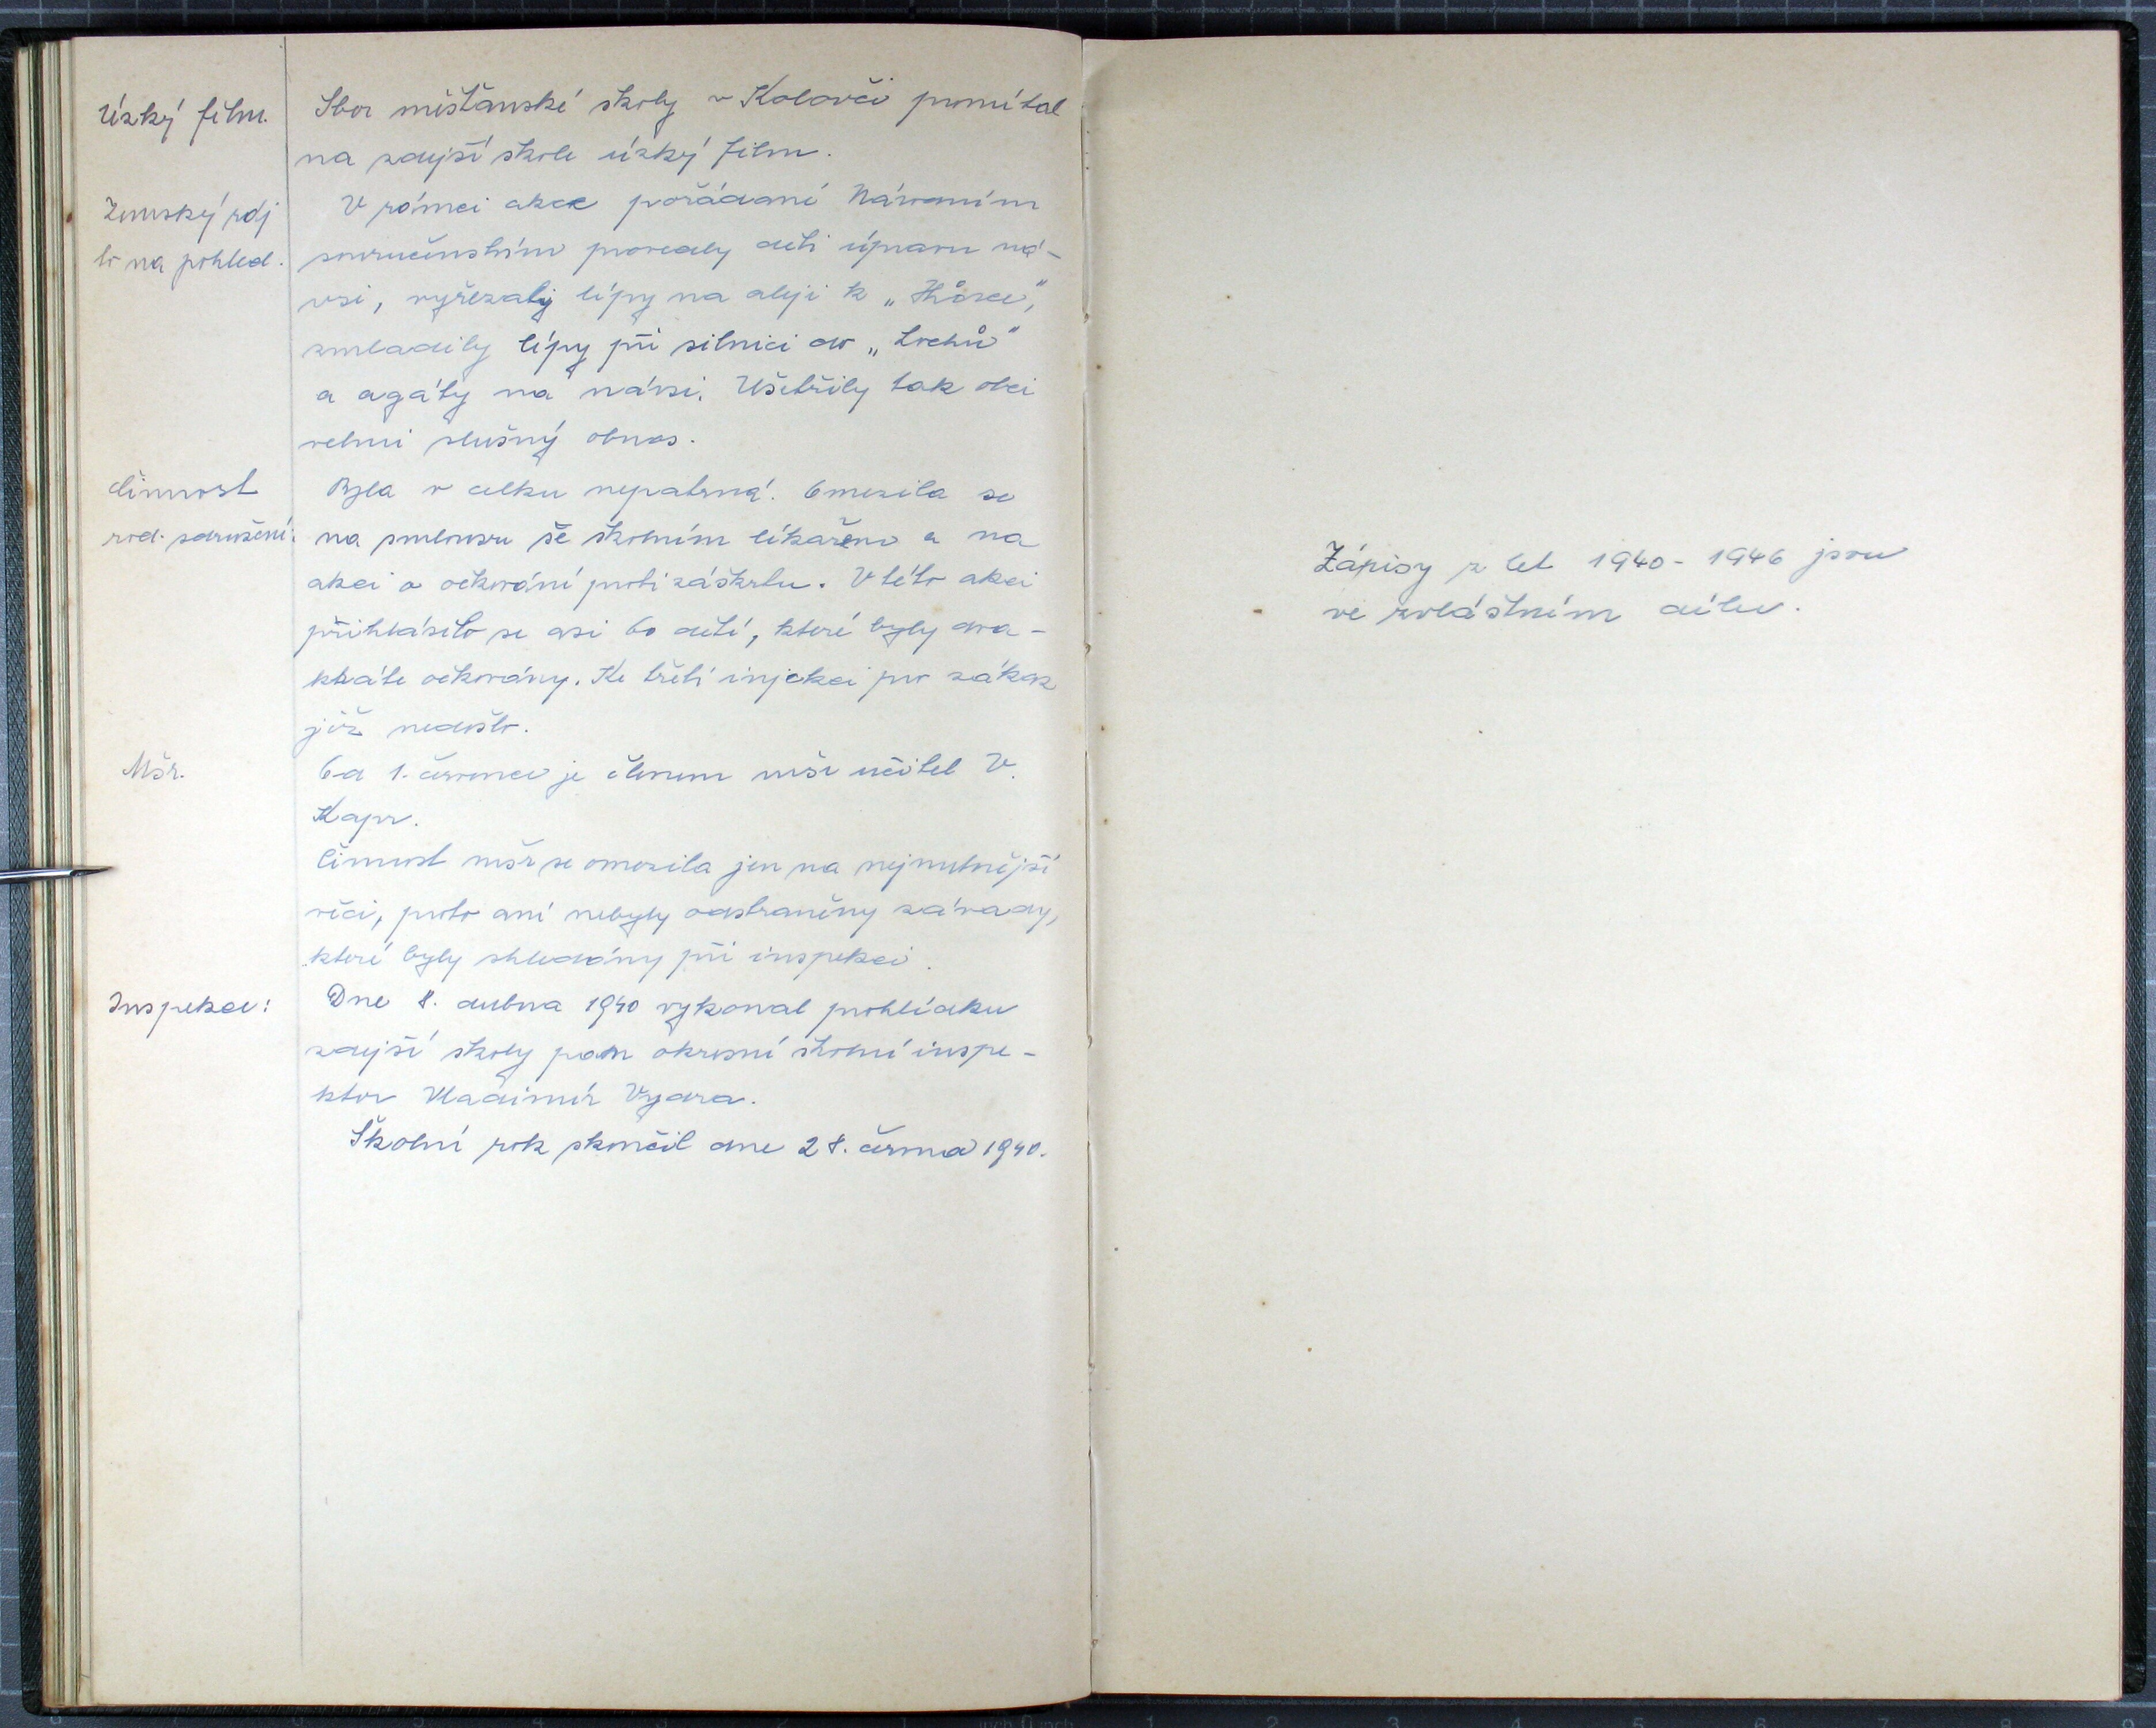 Úzký film.
Sbor měšťanské školy v Kolovči promítal
na zdejší škole úzký film.
Zemský ráj
to na pohled.
V rámci akce pořádané Národním
souručenstvím provedly děti úpravu ná-
vsi, vyřezaly lípy na aleji k „Hůrce",
zmladily lípy při silnici do „Lochů"
a agáty na návsi. Ušetřily tak obci
velmi slušný obnos.
Činnost
rod. sdružení:
Byla v celku nepatrná. Omezila se
na smlouvu se školním lékařem a na
akci o očkování proti záškrtu. V této akci
přihlásilo se asi 60 dětí, které byly dva-
kráte očkovány. Ke třetí injekci pro zákaz
již nedošlo.
Mšr.
Od 1. července je členem mšr učitel V.
Kapr.
Činnost mšr se omezila jen na nejnutnější
věci, proto ani nebyly odstraněny závady,
které byly shledány při inspekci.
Inspekce:
Dne 8. dubna 1940 vykonal prohlídku
zdejší školy pan okresní školní inspe-
ktor Vladimír Vydra.
Školní rok skončil dne 28. června 1940.
Zápisy z let 1940 - 1946 jsou
ve zvláštním dílu.